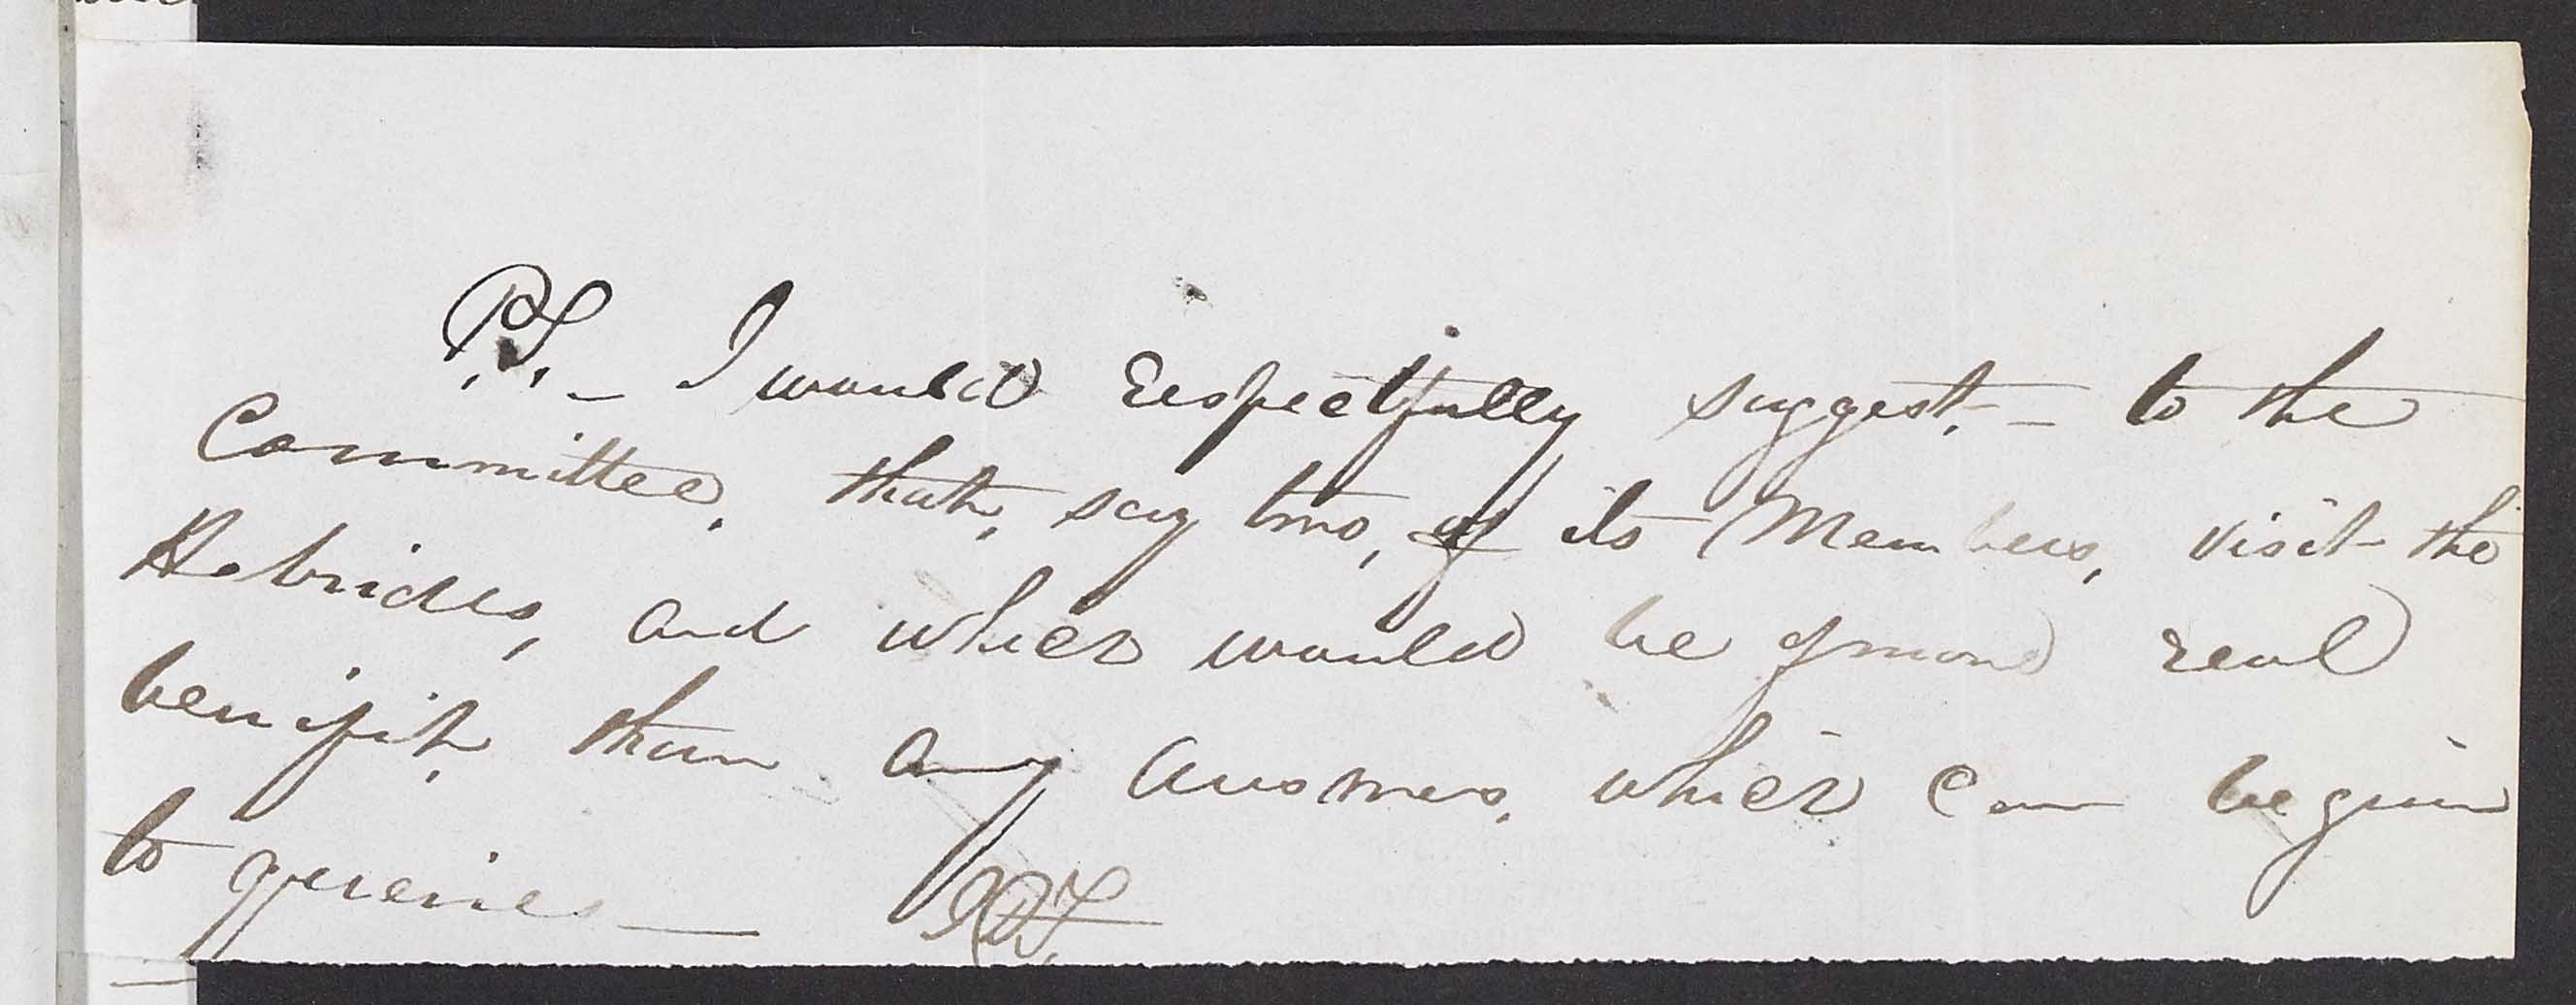 P.S. – I would respectfully suggest, – to the
Committee, that, say two, of its Members, visit the
Hebrides, and which would be of more real
benifit, than any answers, which can be given
to queries —